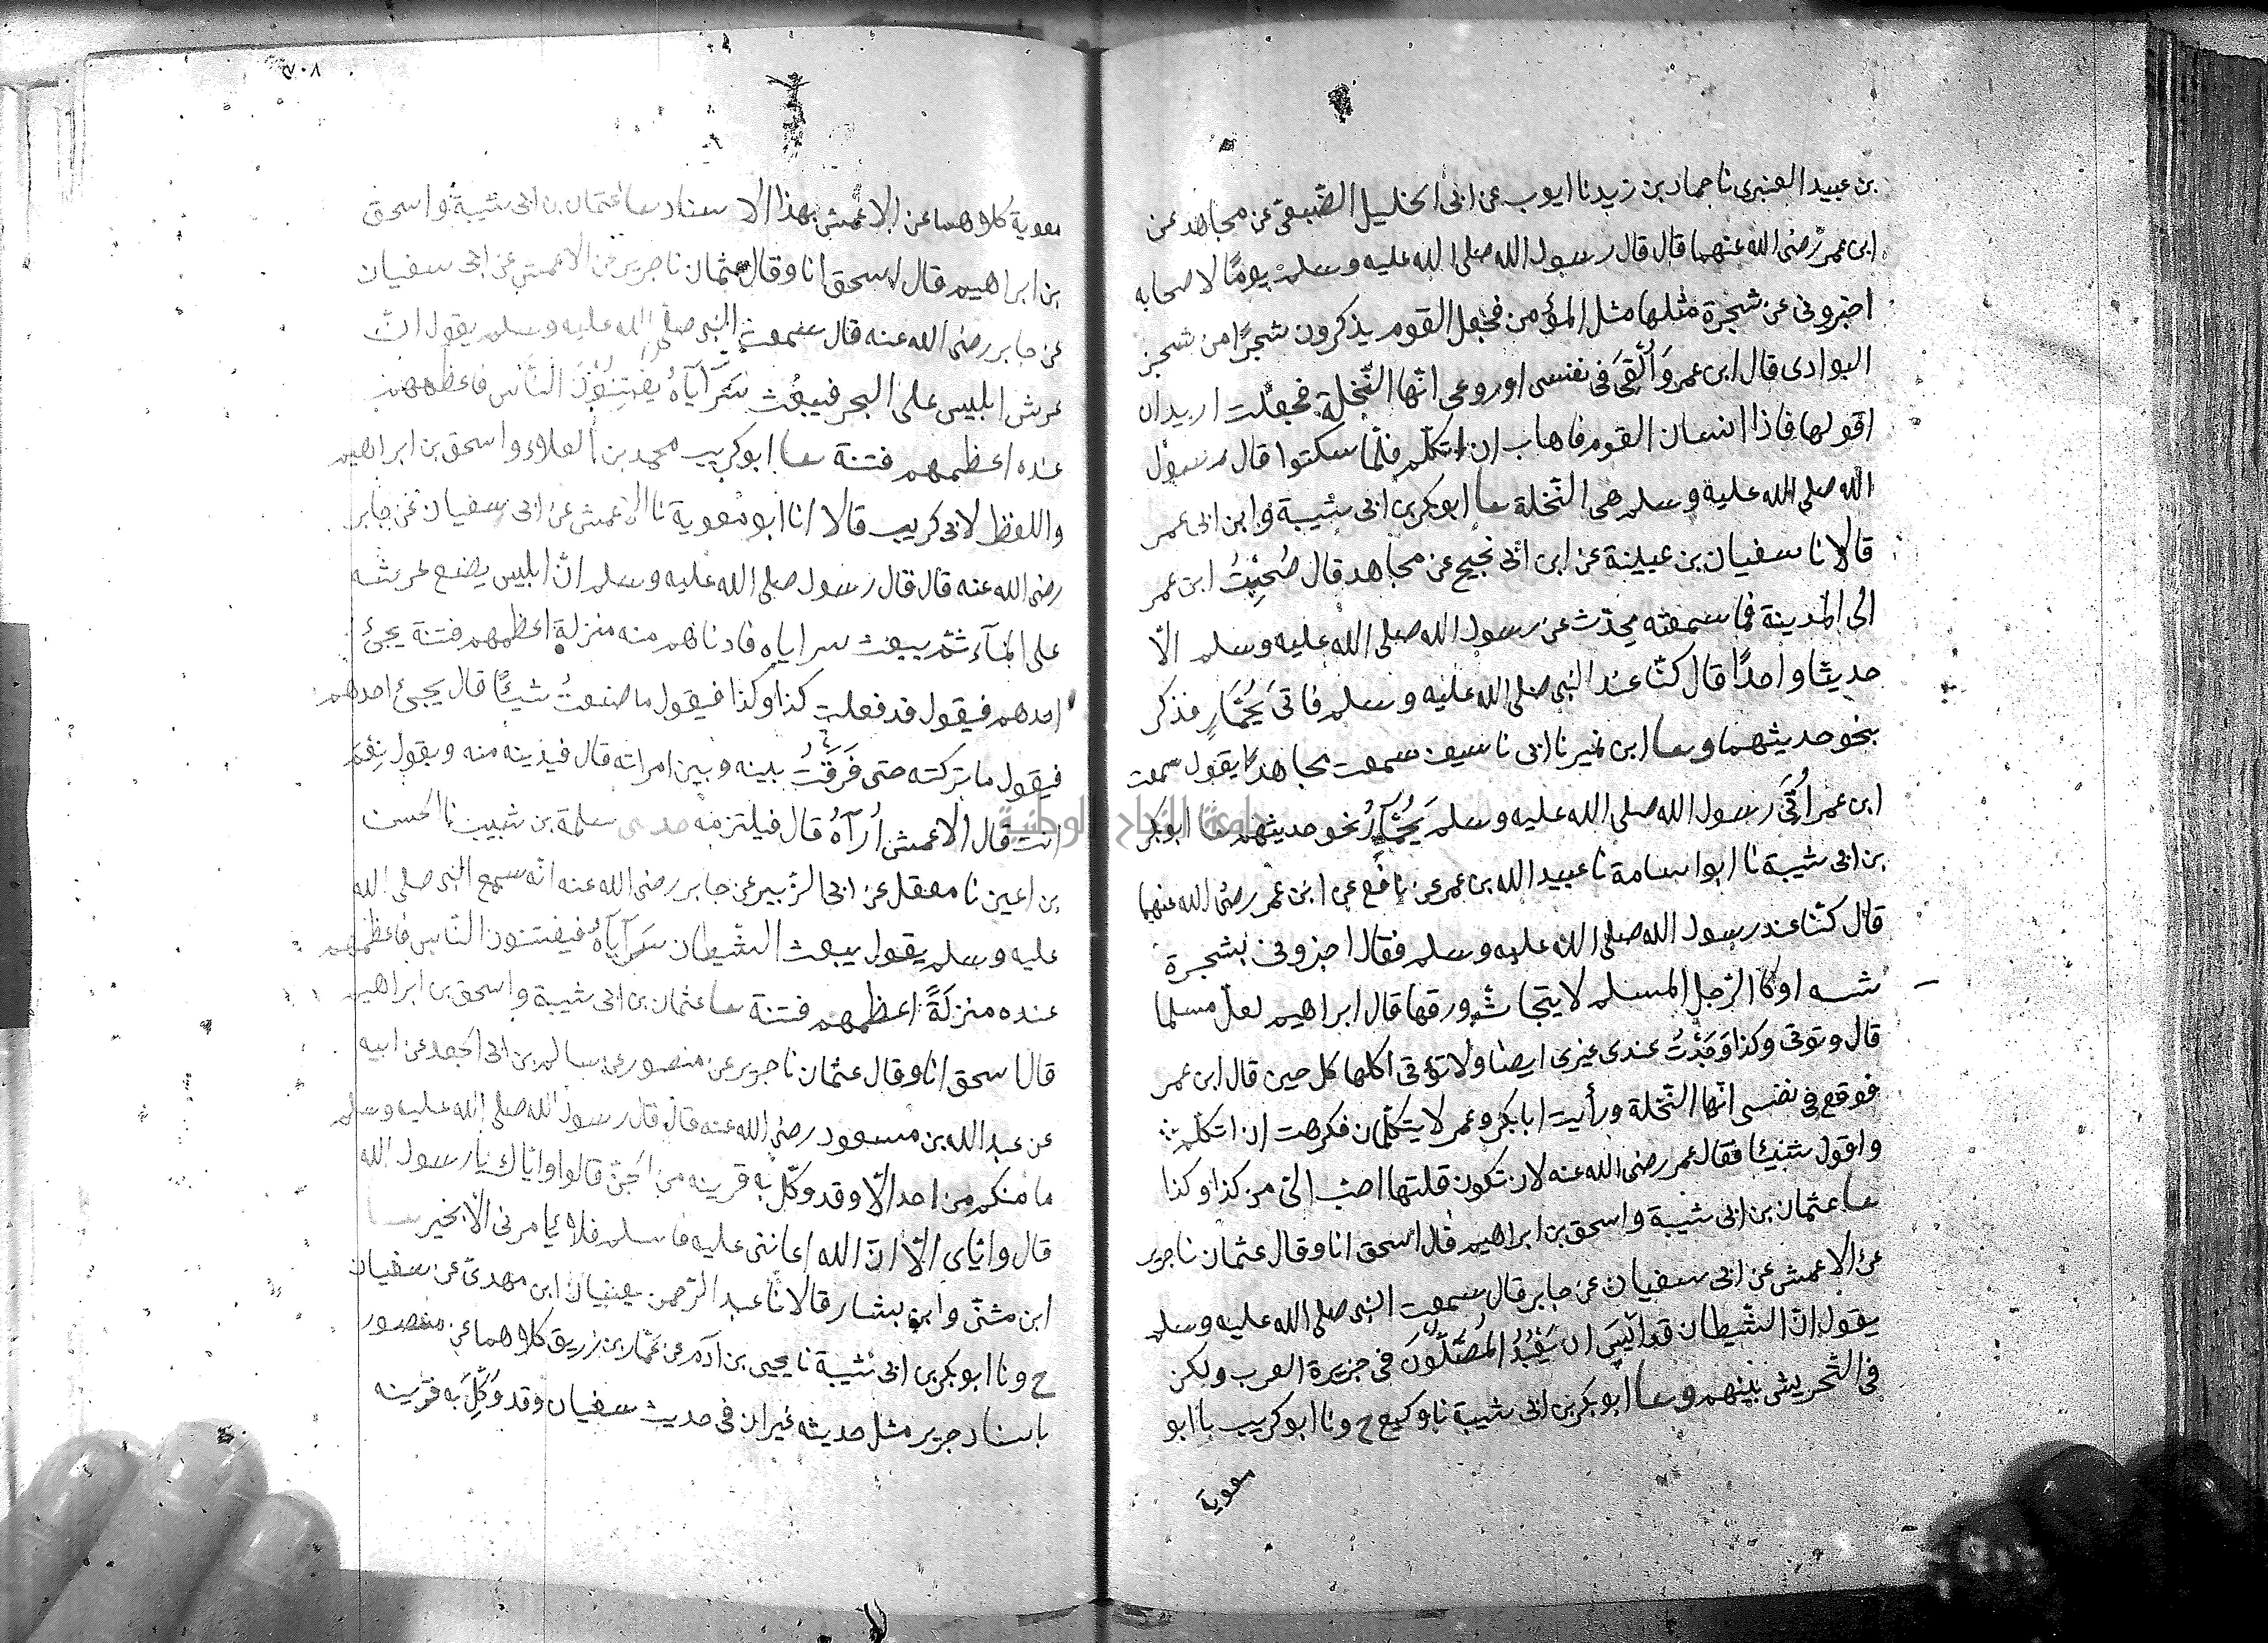 بن عبيد العنبرى نا حماد بن زيد نا ايوب عن ابى الخليل الضبعى عن مجاهد عن
ابن عمر رضى الله عنهما قال قال رسول الله صلى الله عليه وسلم يومًا لاصحابه
اخبرونى عن شجرة مثلها مثل المؤمن فجعل القوم يذكرون شجرًا من شجر
البوادى قال ابن عمر وَأُلْقِىَ فى نفسى او روعى انّها النّخلة فجعلت اريد ان
اقولها فاذا اسنان القوم فاهاب ان اتكلّم فلمّا سكتوا قال رسول
الله صلى الله عليه وسلم هى النّخلة حدثنا ابو بكر بن ابى شيبة وابن ابى عمر
قالا نا سفيان بن عيينة عن ابن ابى نجيح عن مجاهد قال صَحِبْتُ ابن عمر
الى المدينة فما سمعته يحدّث عن رسول الله صلى الله عليه وسلم الّا
حديثا واحدًا قال كنّا عند النبى صلى الله عليه وسلم فاتى بجُمّارٍ فذكر
بنحو حديثهما وحدثنا ابن نمير نا ابى نا سيف سمعت مجاهدًا يقول سمعت
ابن عمر اُتِىَ رسول الله صلى الله عليه وسلم بجُمّارٍ نحو حديثهم حدثنا ابو بكر
بن ابى شيبة نا ابو اسامة نا عبيد الله بن عمر عن نافع عن ابن عمر رضى الله عنهما
قال كنّا عند رسول الله صلى الله عليه وسلم فقال اخبرونى بشجرة
شبه او كالرّجل المسلم لا يتحاتّ ورقها قال ابراهيم لعلّ مسلما
قال وتوتى وكذا وَجَدْتُ عند غيرى ايضا ولا تؤتى اكلها كل حين قال ابن عمر
فوقع فى نفسى انّها النّخلة ورأيت ابا بكر وعمر لا يتكلّمان فكرهت ان اتكلّم
واقول شيئا فقال عمر رضى الله عنه لان تكون قلتها احبّ الىّ من كذا وكذا
حدثنا عثمان بن ابى شيبة واسحق بن ابراهيم قال اسحق انا وقال عثمان نا جرير
عن الاعمش عن ابى سفيان عن جابر قال سمعت النبى صلى الله عليه وسلم
يقول انّ الشّيطان قد اَيِسَ ان يَعْبُدَهُ المُصَلّونَ فى جزيرة العرب ولكن
فى التّحريش بينهم وحدثنا ابو بكر بن ابى شيبة نا وكيع ح ونا ابو كريب نا ابو
معوية
معوية كلاهما عن الاعمش بهذا الاسناد حدثنا عثمان بن ابى شيبة واسحق
بن ابراهيم قال اسحق انا وقال عثمان نا جرير عن الاعمش عن ابى سفيان
عن جابر رضى الله عنه قال سمعت النبى صلى الله عليه وسلم يقول انّ
عرش ابليس على البحر فيبعث سَرَاياهُ يفتنون النّاس فاعظمهم
عنده اعظمهم فتنة حدثنا ابو كريب محمد بن العلاء واسحق بن ابراهيم
واللفظ لابى كريب قالا انا ابو معوية نا الاعمش عن ابى سفيان عن جابر
رضى الله عنه قال قال رسول صلى الله عليه وسلم انّ ابليس يضع عرشه
على المآء ثمّ يبعث سراياه فادناهم منه منزلة اعظمهم فتنة يجئ
احدهم فيقول قد فعلت كذا وكذا فيقول ما صنعتُ شيئًا قال يجئ احدهم
فيقول ما تركته حتى فَرَقتُ بينه وبين امراته قال فيدنيه منه ويقول نِعْمَ
انت قال الاعمش اُرَآهُ قال فيلتزمه حدثنى سلمة بن شبيب نا الحسن
بن اعين نا معقل عن ابى الزّبير عن جابر رضى الله عنه انّه سمع النبى صلى الله
عليه وسلم يقول يبعث الشّيطان سَرَآيَاهُ فيفتنون النّاس فاعظمهم
عنده منزلةً اعظمهم فتنة حدثنا عثمان بن ابى شيبة واسحق بن ابراهيم
قال اسحق انا وقال عثمان نا جرير عن منصور عن سالم بن ابى الجعد عن ابيه
عن عبد الله بن مسعود رضى الله عنه قال قال رسول الله صلى الله عليه وسلم
ما منكم من احد الّا وقد وكّل به قرينه من الجنّ قالوا وايّاك يا رسول الله
قال وايّاى الّا انّ الله اعاننى عليه فاسلم فلا يامرنى الّا بخير حدثنا
ابن مثنّى وابن بشار قالا نا عبد الرّحمن يعنيان ابن مهدىّ عن سفيان
ح ونا ابو بكر بن ابى شيبة نا يحيى بن آدم عن عمّار بن زريق كلاهما عن منصور
باسناد جرير مثل حديثه غير ان فى حديث سفيان وقد وُكِّلَ به قرينه